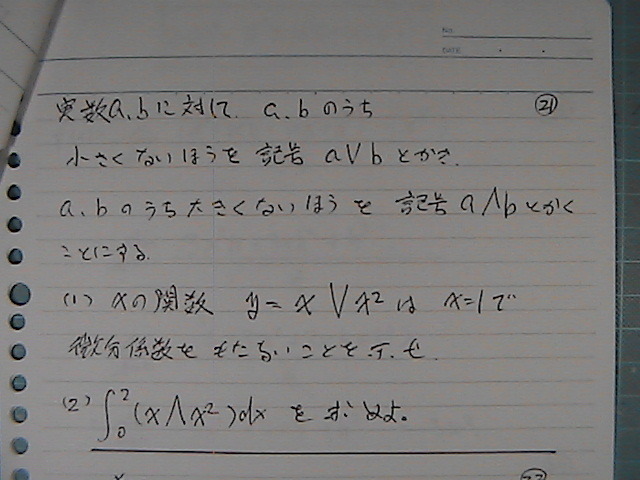 No.
DATE
実数a,bに対して a,bのうち ㉑
小さくないほうを 記号 a∨b とかき.
a,bのうち大きくないほうを 記号 a∧b とかく
ことにする.
(1) xの関数 y=x∨x² は x=1で
微分係数をもたないことを示せ.
(2) ∫₀²(x∧x²)dx を求めよ.